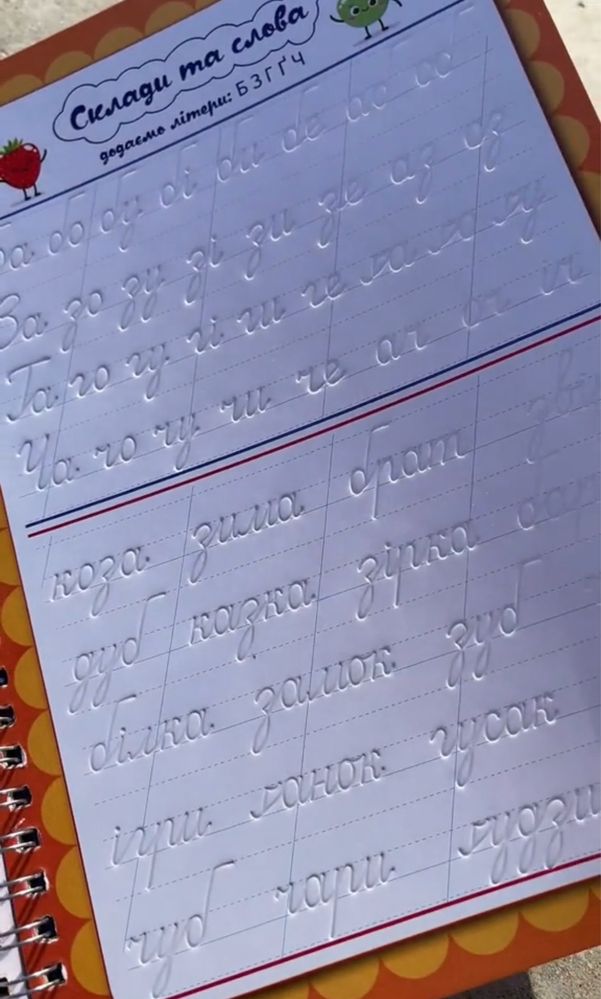 Склади та слова
додаємо літери: Б З Г Ґ Ч
об оу бі би бе аб об
За зо зу зі зи зе аз оз
Га го гу гі ги ге ґа ґо ґу
Ча чо чу чи че ач оч іч
коза зима брат
дуб казка зірка
білка замок зуб
ігри ґанок гусак
чуб чари ґудзи